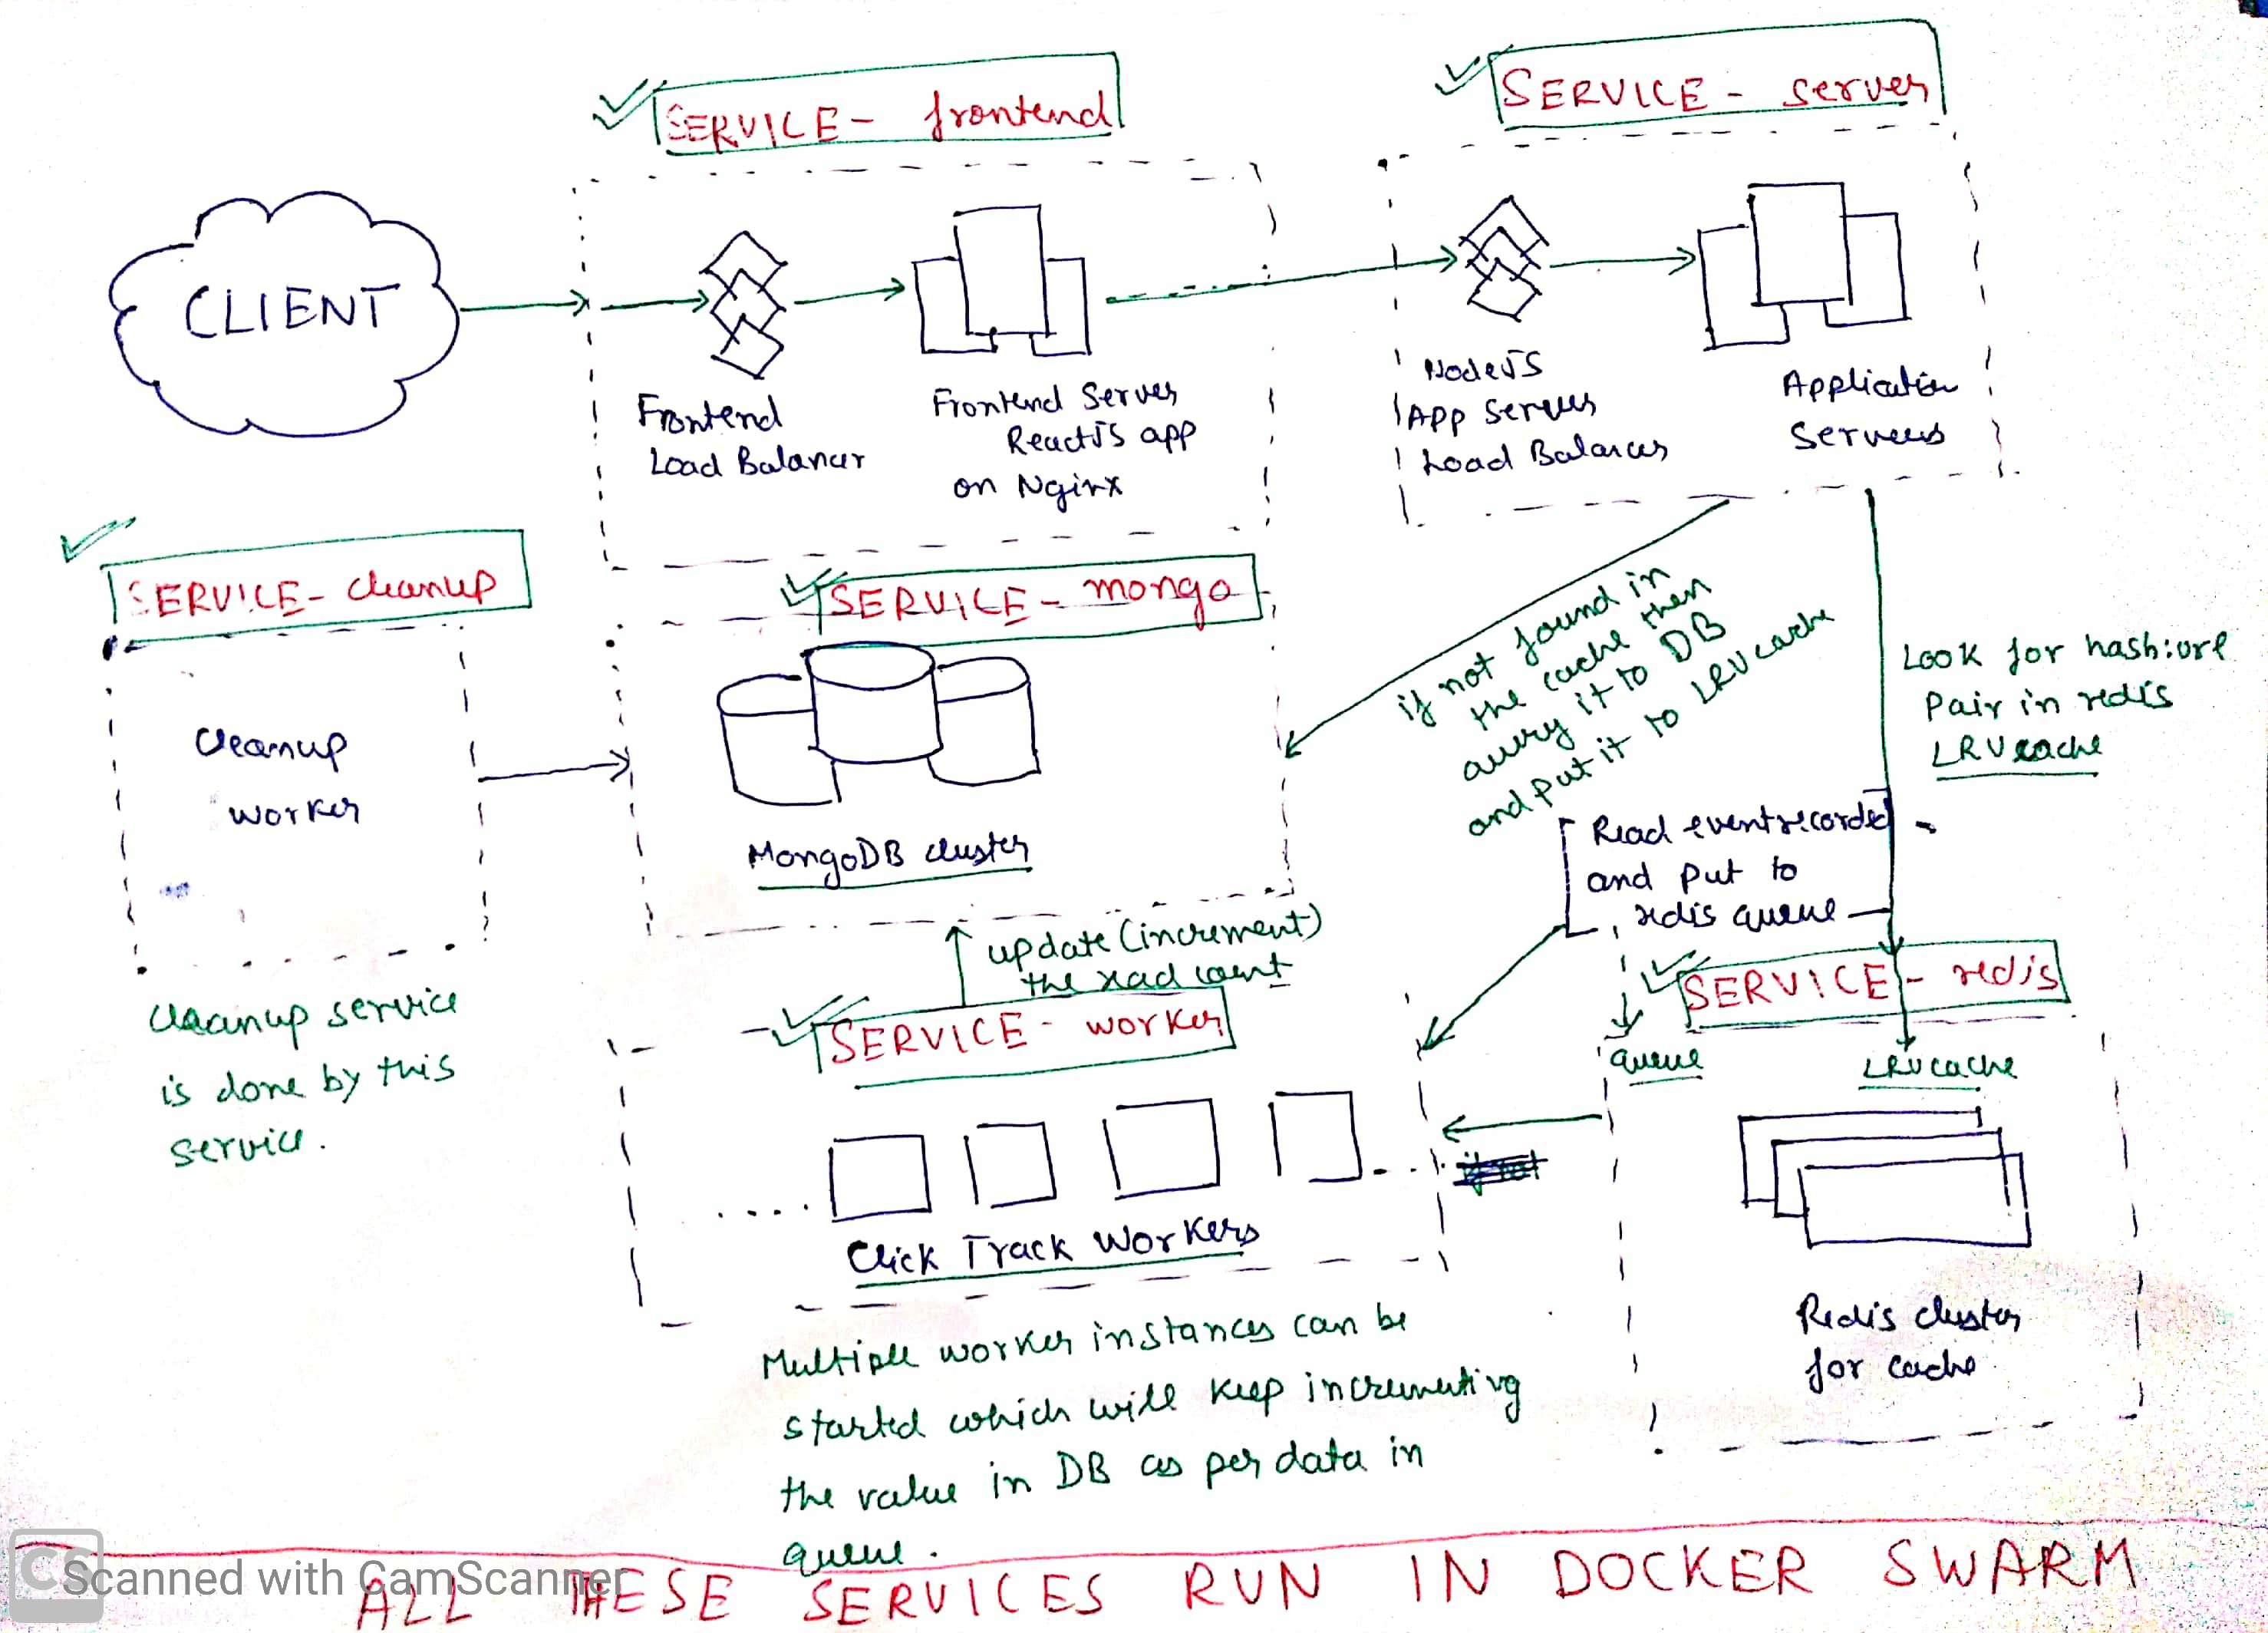 SERVICE - frontend
SERVICE - server
CLIENT
Frontend
Load Balancer
Frontend Server
ReactJS app
on Nginx
NodeJS
App Servers
Load Balancer
Application
Servers
SERVICE - cleanup
cleanup
worker
cleanup service
is done by this
service.
SERVICE - mongo
MongoDB cluster
if not found in
the cache then
query it to DB
and put it to LRU cache
Look for hash:url
pair in redis
LRU cache
Read event recorded
and put to
redis queue
update (increment)
the read count
SERVICE - worker
Click Track Workers
Multiple worker instances can be
started which will keep incrementing
the value in DB as per data in
queue.
SERVICE - redis
queue
LRU cache
Redis cluster
for cache
ALL THESE SERVICES RUN IN DOCKER SWARM
CS Scanned with CamScanner